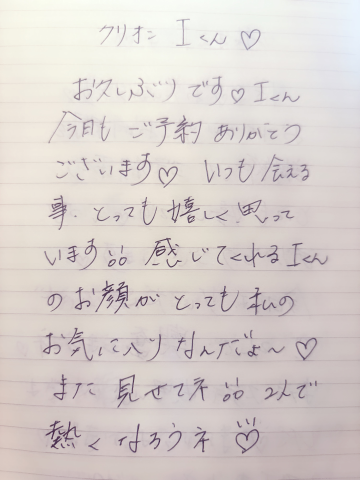 クリオン Iくん♡
お久しぶりです♡Iくん
今日も ご予約 ありがとう
ございます♡ いつも 会える
事、とっても 嬉しく思って
います 感じてくれるIくん
のお顔が とっても 私の
お気に入りなんだょ〜♡
また 見せてネ 2人で
熱くなろうネ♡